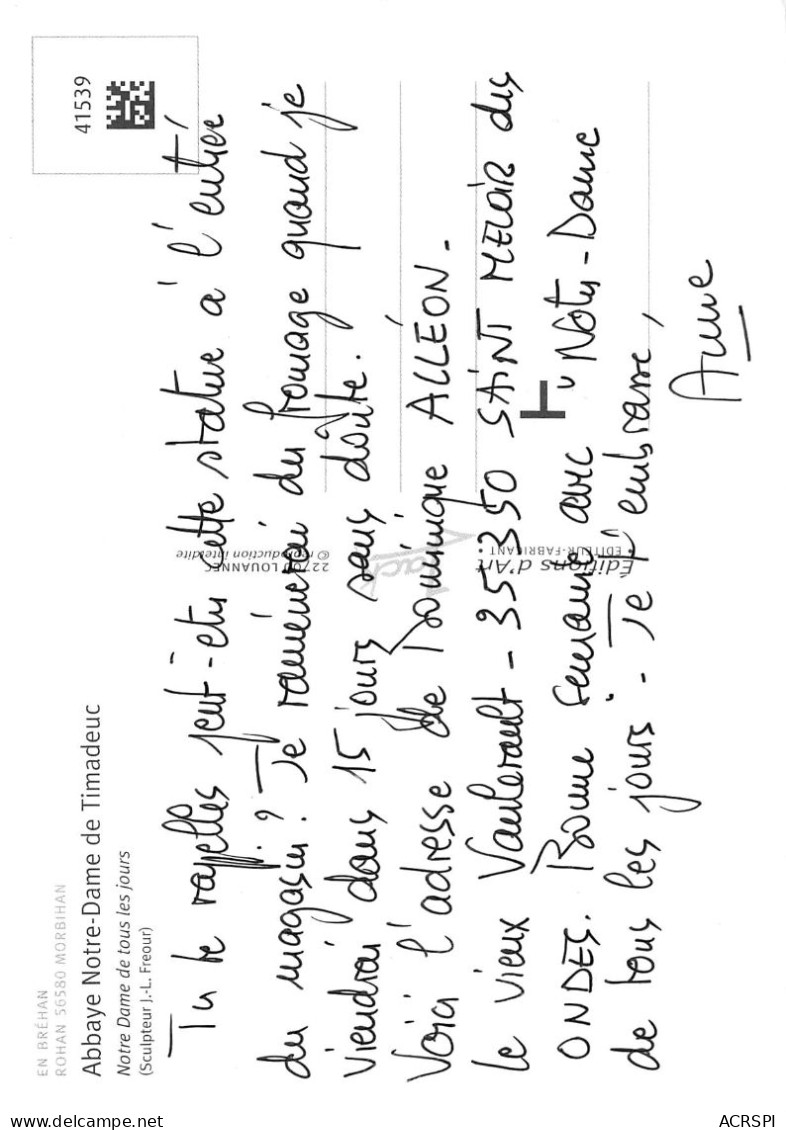 EN BRÉHAN
ROHAN 56580 MORBIHAN
Abbaye Notre-Dame de Timadeuc
Notre Dame de tous les jours
(Sculpteur J.-L. Freour)
41539
Tu te rappelles peut-être cette statue à l'entrée
du magasin? Je ramènerai du fromage quand je
viendrai dans 15 jours sans doute.
Voici l'adresse de Dominique ALLÉON.
le vieux - 35350 SAINT MELOIR des
ONDES. Bonne semaine avec "Notre-Dame
de tous les jours". Je t'embrasse,
Anne
Editions d'Art
Jack
ÉDITEUR-FABRICANT
22700 LOUANNEC
© reproduction interdite
www.delcampe.net
ACRSPI